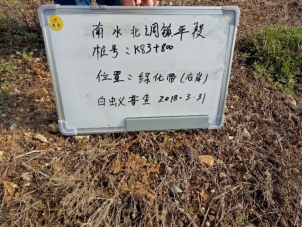 南水北调镇平段
桩号：K83+800
位置：绿化带（右岸）
白蚁普查 2018.3.31